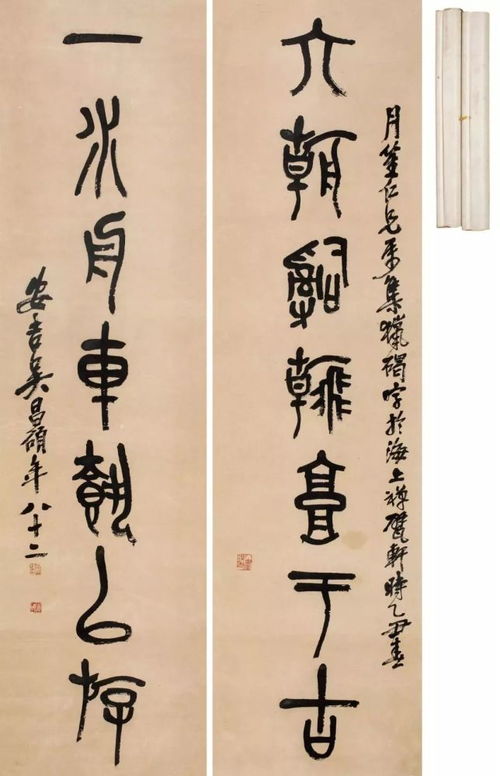 月笙仁兄屬集獵碣字於海上禪甓軒時乙丑春
六朝辭翰高于古
一水舟車以斿
安吉吳昌碩年八十二